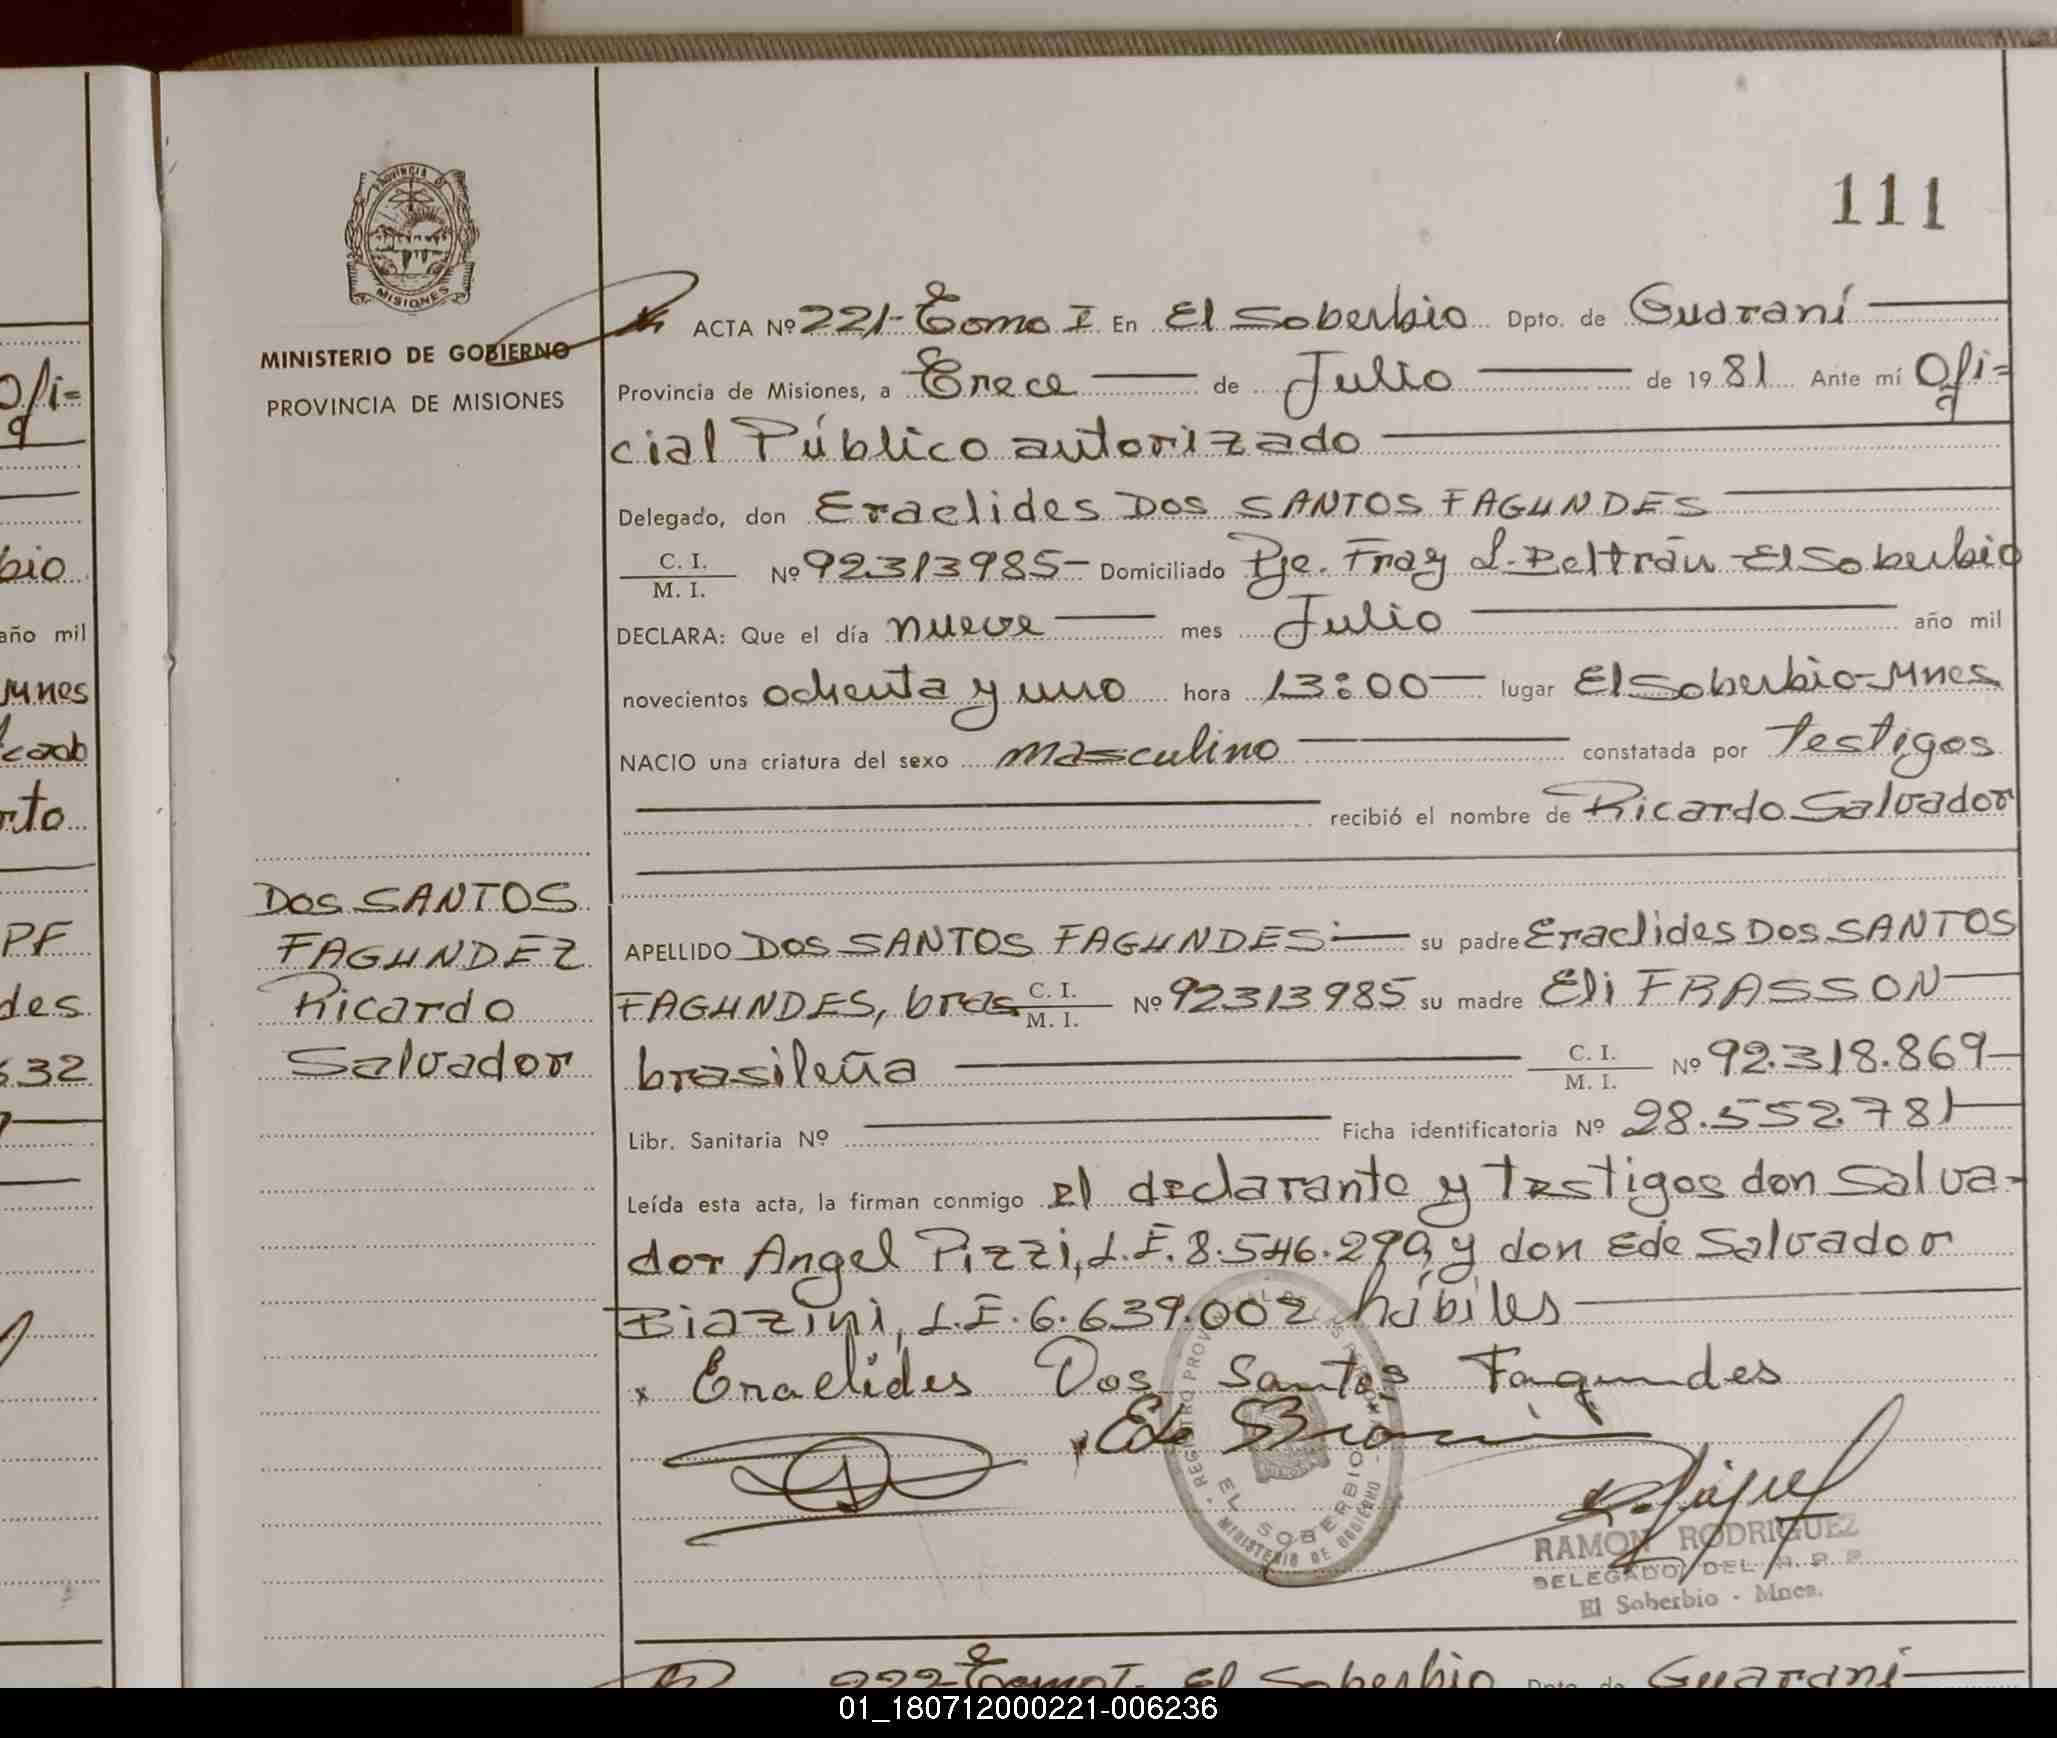 111
PROVINCIA DE
MISIONES
MINISTERIO DE GOBIERNO
PROVINCIA DE MISIONES
ACTA Nº 221- Tomo I En El Soberbio Dpto. de Guaraní
Provincia de Misiones, a Trece de Julio de 1981 Ante mí Ofi=
cial Público autorizado
Delegado, don Eraclides DOS SANTOS FAGUNDES
C. I.
M. I. Nº 92313985- Domiciliado Pje. Fray L. Beltrán-El Soberbio
DECLARA: Que el día nueve mes Julio año mil
novecientos ochenta y uno hora 13:00 lugar El Soberbio-Mnes
NACIO una criatura del sexo masculino constatada por Testigos
recibió el nombre de Ricardo Salvador
DOS SANTOS
FAGUNDEZ
Ricardo
Salvador
APELLIDO DOS SANTOS FAGUNDES su padre Eraclides DOS SANTOS
FAGUNDES, bras C. I.
M. I. Nº 92313985 su madre Eli FRASSON
brasileña C. I.
M. I. Nº 92.318.869
Libr. Sanitaria Nº Ficha identificatoria Nº 28.552.781
Leída esta acta, la firman conmigo el declarante y testigos don Salva-
dor Angel Pizzi, L.E. 8.546.299, y don Ede Salvador
Biazini, L.E. 6.639.002 hábiles
x Eraclides Dos Santos Fagundes
REGISTRO PROVINCIAL DE LAS PERSONAS
EL SOBERBIO
MINISTERIO DE GOBIERNO
RAMON RODRIGUEZ
DELEGADO DEL R. P. P.
El Soberbio - Mnes.
222- Tomo I El Soberbio Dpto. de Guaraní
Ofi=
bio
año mil
Mnes
rto
PF
des
632
01_180712000221-006236